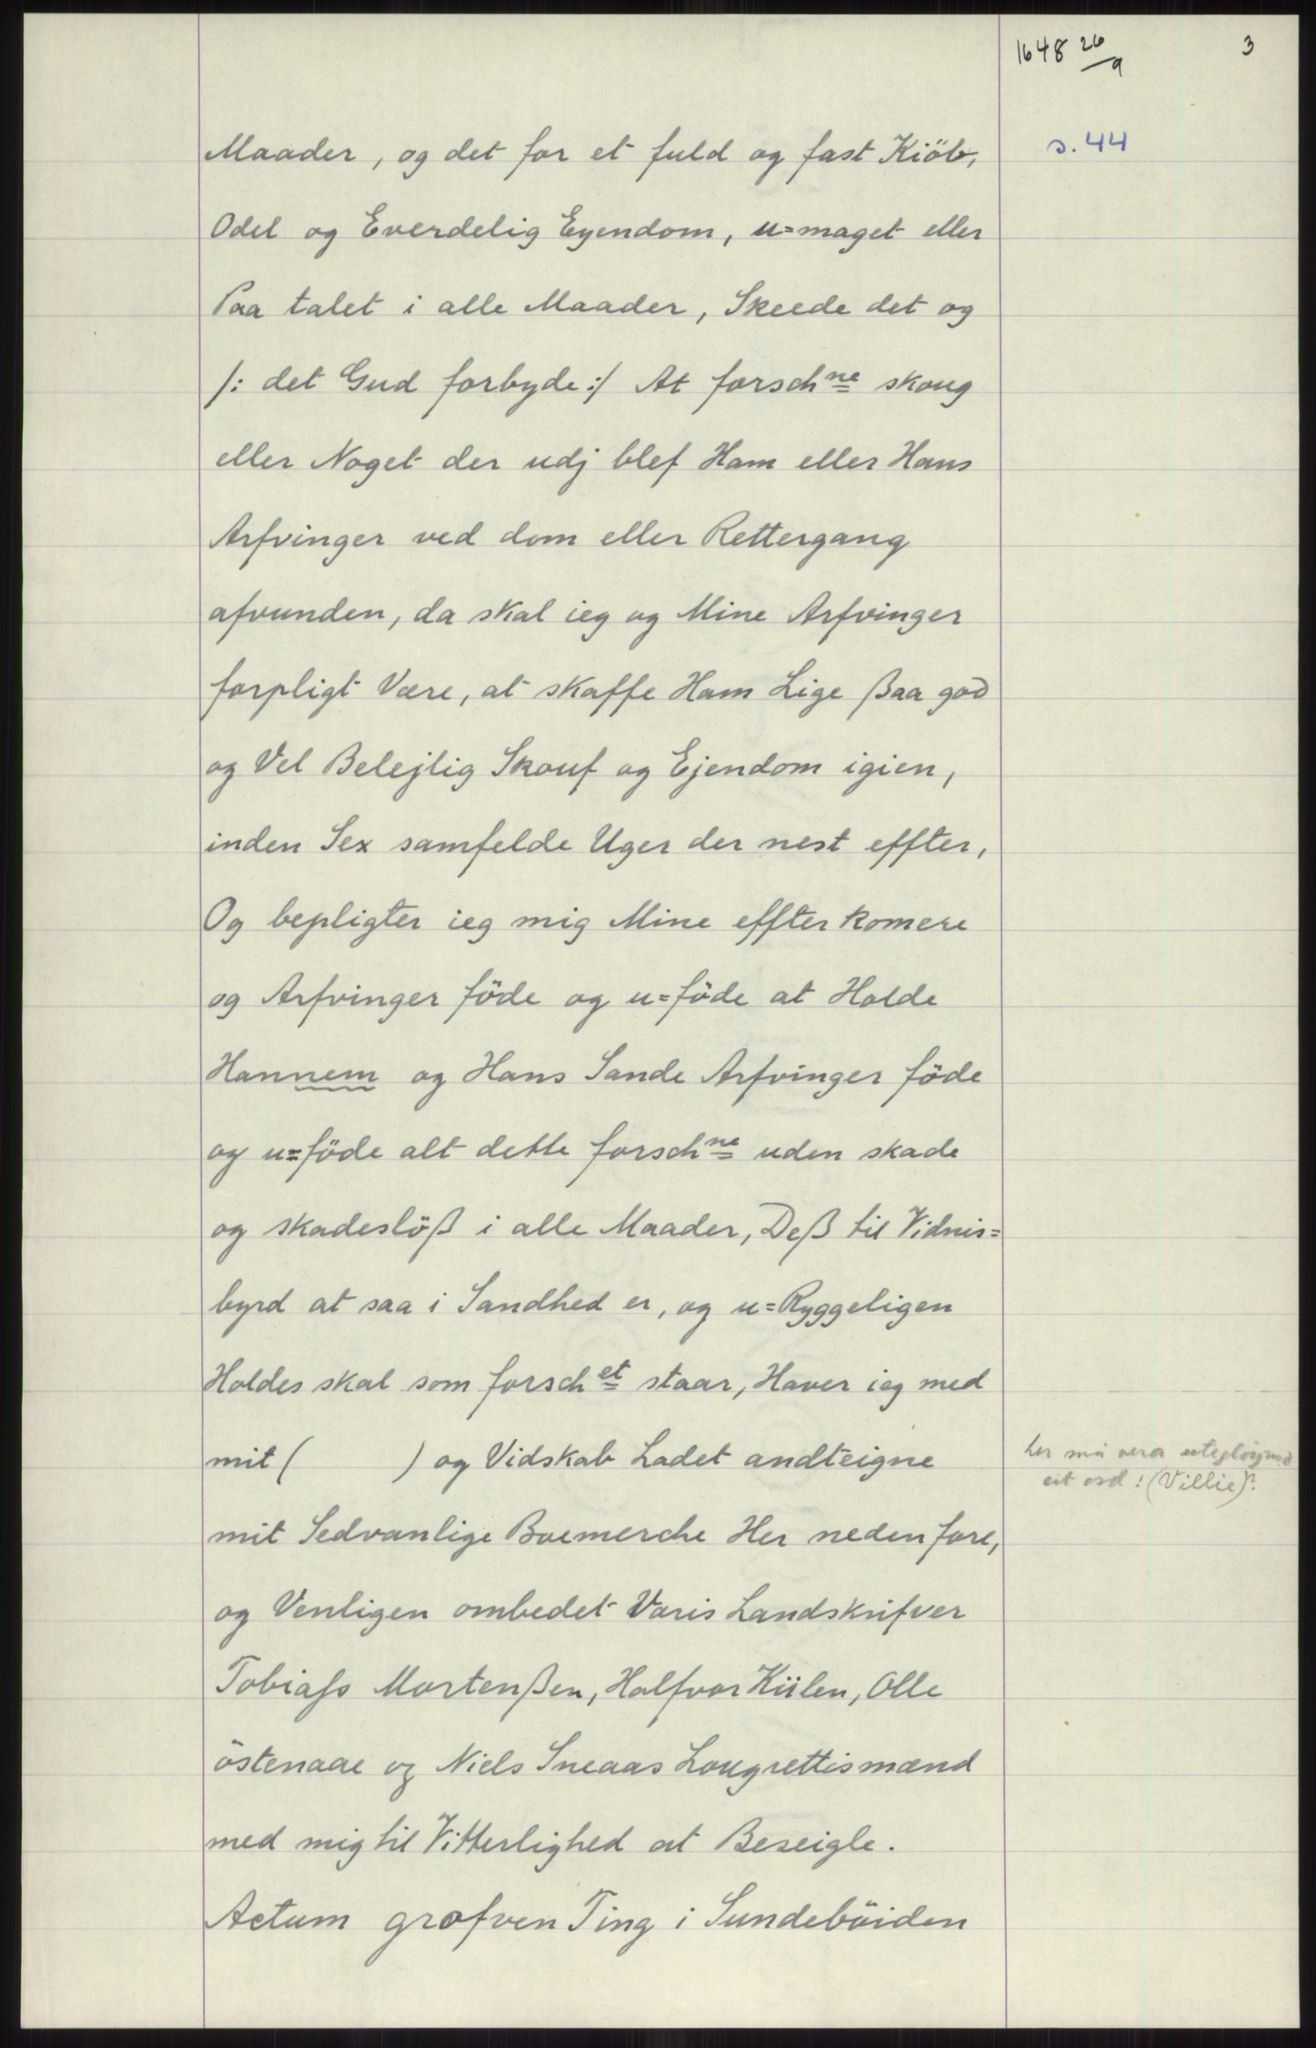 1648 26/9
3
s. 44
Maader, og det for et fuld og fast Kiöb,
Odel og Everdelig Eyendom, u=maget eller
Paa talet i alle Maader, Skeede det og
/: det Gud forbyde :/ At forschne skoug
eller Noget der udj blef Ham eller Hans
Arfvinger ved dom eller Rettergang
afvunden, da skal ieg og Mine Arfvinger
forpligt Være, at skaffe Ham Lige ßaa god
og Vel Belejlig Skouf og Ejendom igien,
inden Sex samfelde Uger der nest effter,
Og bepligter ieg mig Mine effterkomere
og Arfvinger föde og u=föde at Holde
Hannem og Hans Sande Arfvinger föde
og u=föde alt dette forschne uden skade
og skadeslöß i alle Maader, Deß til Vidnis=
byrd at saa i Sandhed er, og u=Ryggeligen
Holdes skal som forschet staar, Haver ieg med
mit (          ) og Vidskab Ladet andteigne
her må vera
eit ord: (Villie)?
mit Sedvanlige Boemerche Her nedenfore,
og Venligen ombedet Voris Landskrifver
Tobiaſs Mortenßen, Halfvor Kiilen, Olle
östenaae og Niels Sneaas Lougrettismænd
med mig til Vitterlighed at Beseigle.
Actum grofven Ting i Sundeböiden